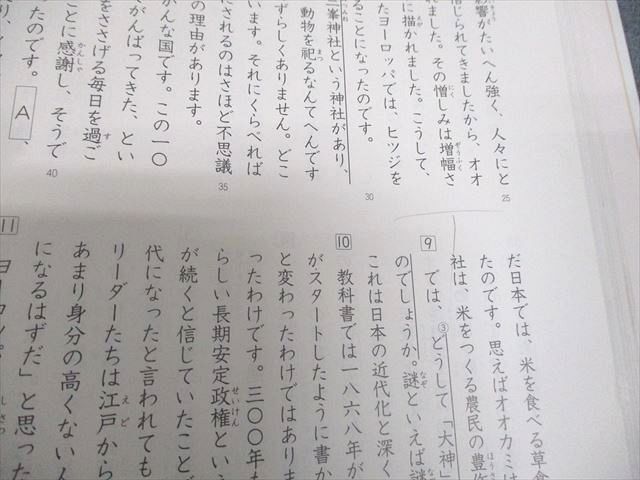 影響がたいへん強く、人々にと
信じられてきましたから、オオ
れました。その憎しみは増幅さ
に描かれました。こうして、
たヨーロッパでは、ヒツジを
ることになったのです。
三峯神社という神社があり、
動物を祀るなんてへんです
ずらしくありません。どこ
います。それにくらべれば
にされるのはさほど不思議
の理由があります。
かんな国です。この一〇
がんばってきた、とい
をささげる毎日を過ご
ことに感謝し、そうで
たのです。 A 、
25
30
35
40
だ日本では、米を食べる草食
たのです。思えばオオカミは
社は、米をつくる農民の豊作
9 では、③どうして「大神」
のでしょうか。謎といえば謎
これは日本の近代化と深く
10 教科書では一八六八年が
がスタートしたように書か
と変わったわけではありま
ったわけです。三〇〇年も
らしい長期安定政権とい
が続くと信じていたことで
代になったと言われても
リーダーたちは江戸から
あまり身分の高くない人
になるはずだ」と思った
11